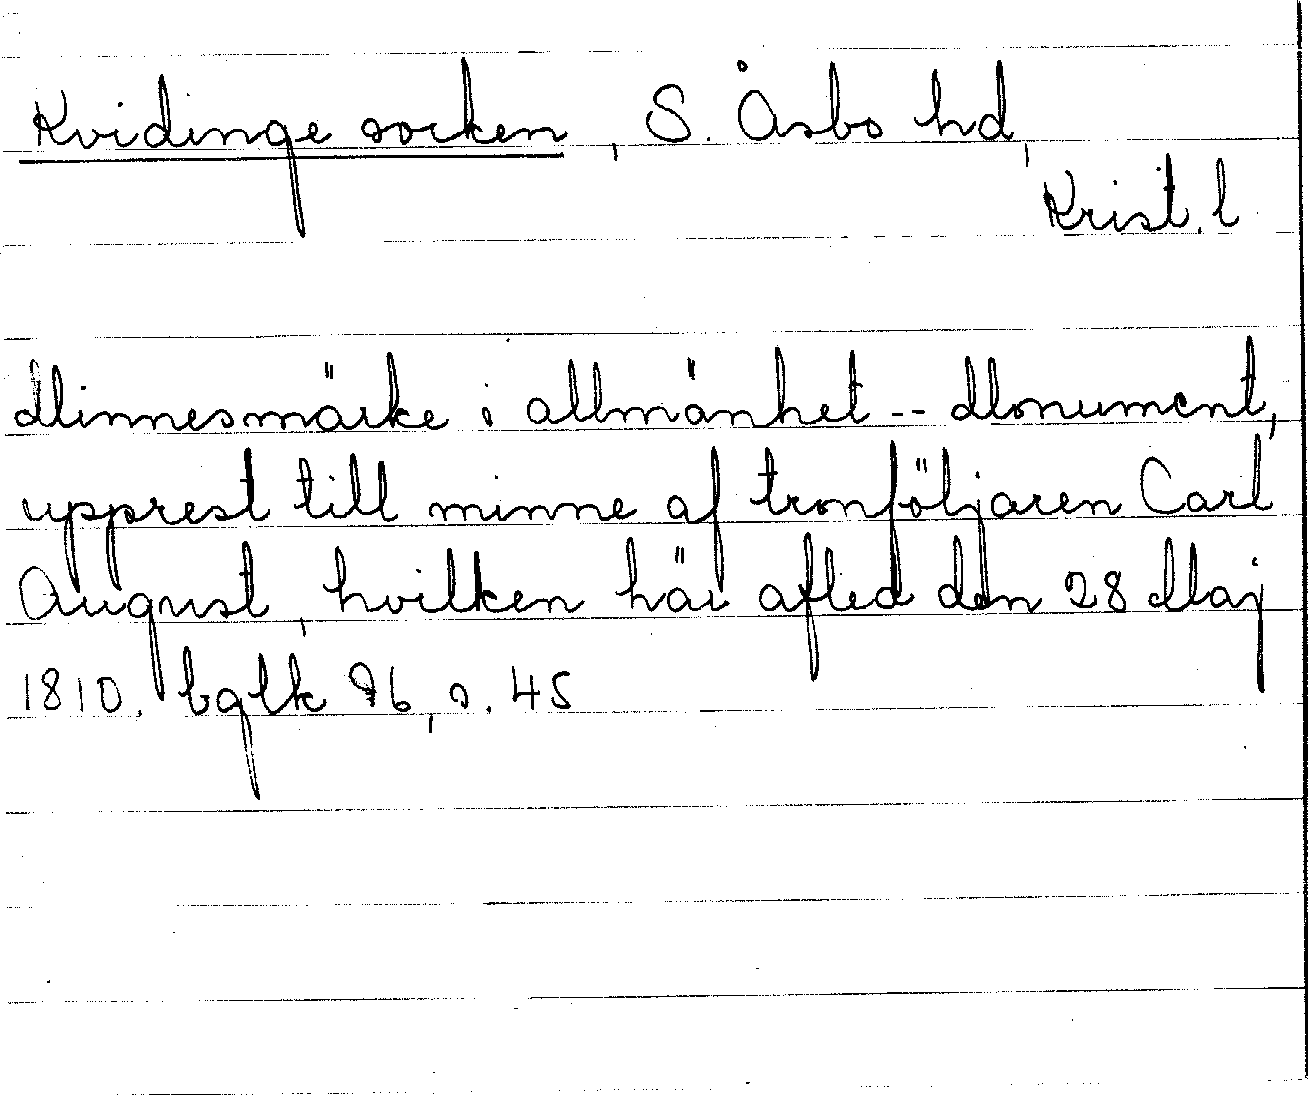 Kvidinge socken, S. Åsbo hd,
Krist. l
Minnesmärke i allmänhet -- Monument,
upprest till minne af tronföljaren Carl
August, hvilken här afled den 28 Maj
1810. bglk 96, s. 45